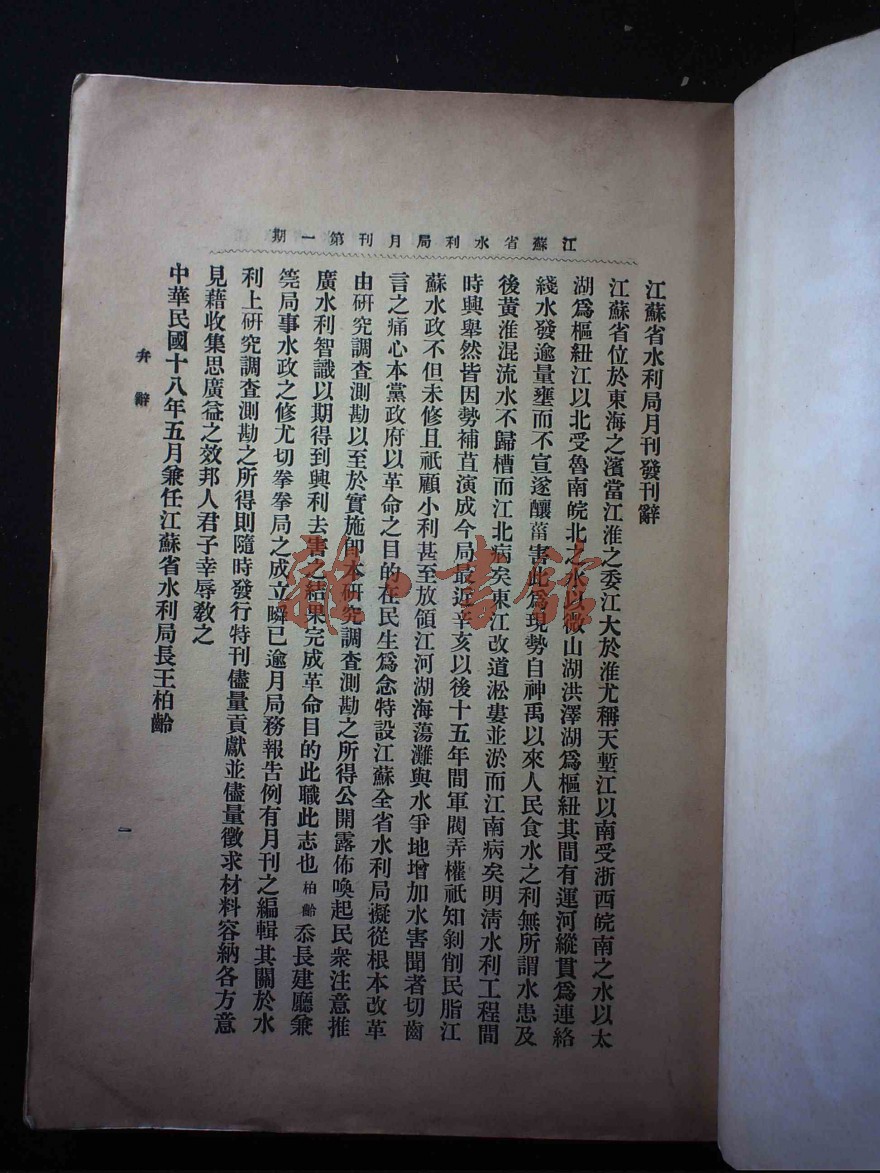 江蘇省水利局月刊第一期
江蘇省水利局月刊發刊辭
江蘇省位於東海之濱當江淮之委江大於淮尤稱天塹江以南受浙西皖南之水以太
湖爲樞紐江以北受魯南皖北之水以微山湖洪澤湖爲樞紐其間有運河縱貫爲連絡
綫水發逾量壅而不宣遂釀菑害此爲現勢自神禹以來人民食水之利無所謂水患及
後黃淮混流水不歸槽而江北病矣東江改道淞婁並淤而江南病矣明清水利工程間
時興舉然皆因勢補苴演成今局最近辛亥以後十五年間軍閥弄權祇知剝削民脂江
蘇水政不但未修且祇顧小利甚至放領江河湖海蕩灘與水爭地增加水害聞者切齒
言之痛心本黨政府以革命之目的在民生爲念特設江蘇全省水利局擬從根本改革
由研究調查測勘以至於實施卽本研究調查測勘之所得公開露佈喚起民衆注意推
廣水利智識以期得到興利去害之結果完成革命目的此職此志也柏齡忝長建廳兼
筦局事水政之修尤切拳拳局之成立瞬已逾月局務報告例有月刊之編輯其關於水
利上研究調查測勘之所得則隨時發行特刊儘量貢獻並儘量徵求材料容納各方意
見藉收集思廣益之效邦人君子幸辱敎之
中華民國十八年五月兼任江蘇省水利局長王柏齡
弁辭
一
雜·書館